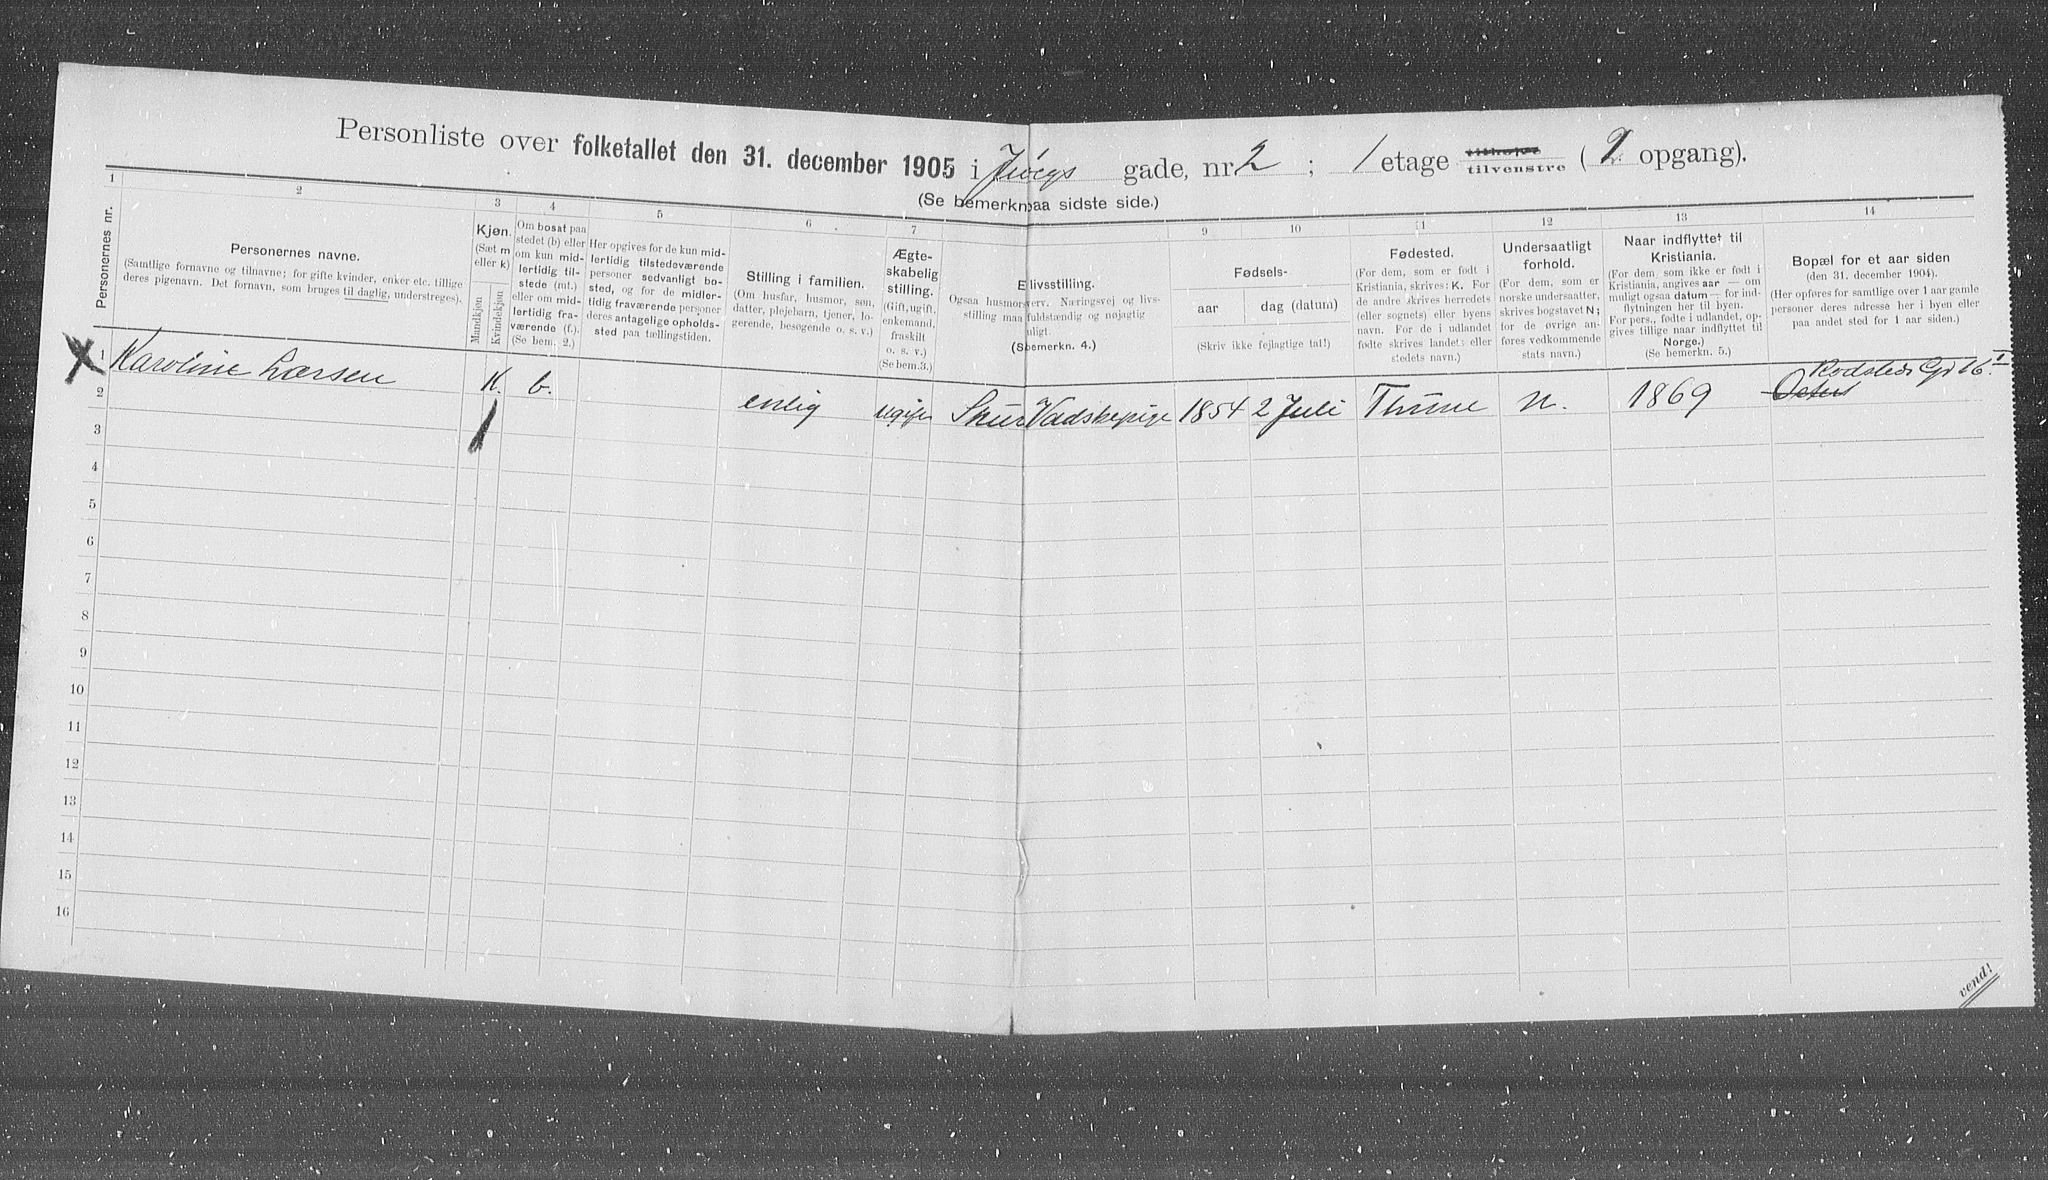 Personliste over folketallet den 31. december 1905 i gade, nr. 2 ; 1 etage tilhøjre tilvenstre (2 opgang).
(Se bemerkn. paa sidste side.)
1 2 3 4 5 6 7 9 10 11 12 13 14
Personernes nr.
Personernes navne.
(Samtlige fornavne og tilnavne; for gifte kvinder, enker etc. tillige
deres pigenavn. Det fornavn, som bruges til daglig, understreges).
Kjøn.
(Sæt m
eller k)
Mandkjøn
Kvindekjøn
Om bosat paa
stedet (b) eller
om kun mid-
lertidig til-
stede (mt.)
eller om mid-
lertidig fra-
værende (f.).
(Se bem. 2.)
Her opgives for de kun mid-
lertidig tilstedeværende
personer sedvanligt bo-
sted, og for de midler-
tidig fraværende personer
deres antagelige opholds-
sted paa tællingstiden.
Stilling i familien.
(Om husfar, husmor, søn,
datter, plejebarn, tjener, lo-
gerende, besøgende o. s. v.)
Ægte-
skabelig
stilling.
(Gift, ugift,
enkemand,
fraskilt
o. s. v.)
(Se bem.3.)
Elivsstilling.
Ogsaa husmorsverv. Næringsvej og livs-
stilling maa fuldstændig og nøjagtig
(Sbemerkn. 4.)
Fødsels-
aar dag (datum)
(Skriv ikke fejlagtige tal!)
Fødested.
(For dem, som er født i
Kristiania, skrives: K. For
de andre skrives herredets
(eller sognets) eller byens
navn. For de i udlandet
fødte skrives landets eller
stedets navn.)
Undersaatligt
forhold.
(For dem, som er
norske undersaatter,
skrives bogstavet N;
for de øvrige an-
føres vedkommende
stats navn.)
Naar indflyttet til
Kristiania.
(For dem, som ikke er født i
Kristiania, angives aar — om
muligt ogsaa datum — for ind-
flytningen her til byen.
For pers., fødte i udlandet, op-
gives tillige naar indflyttet til
Norge.)
(Se bemerkn. 5.)
Bopæl for et aar siden
(den 31. december 1904).
(Her opføres for samtlige over 1 aar gamle
personer deres adresse her i byen eller
paa andet sted for 1 aar siden.)
X 1 Karoline Larsen K. b. enlig ugift Vadskepige 1854 2 Juli Thune N. 1869
2
3
4
5
6
7
8
9
10
11
12
13
14
15
16
vend!